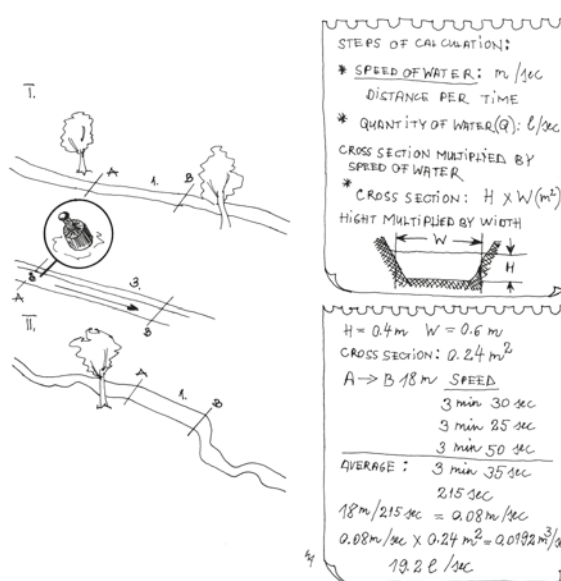 I.
A
1.
B
A
3
3.
B
II.
A
1.
B
STEPS OF CALCULATION:
* SPEED OF WATER: m/sec
DISTANCE PER TIME
* QUANTITY OF WATER(Q): l/sec
CROSS SECTION MULTIPLIED BY
SPEED OF WATER
* CROSS SECTION: H X W(m²)
HIGHT MULTIPLIED BY WIDTH
W
H
H = 0.4m W = 0.6 m
CROSS SECTION: 0.24 m²
A → B 18 m SPEED
3 min 30 sec
3 min 25 sec
3 min 50 sec
AVERAGE: 3 min 35 sec
215 sec
18m/215 sec = 0.08m/sec
0.08m/sec x 0.24 m² = 0.0192 m³/s
19.2 l/sec